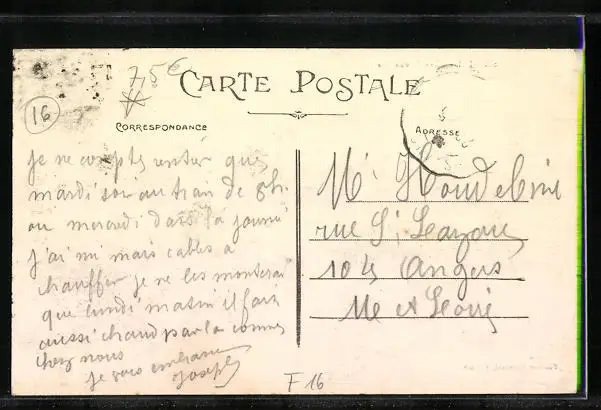 16
7,5€
CARTE POSTALE
CORRESPONDANCE
ADRESSE
je ne compte rentrer que
mardi soir au train de 8h.
ou mercredi dans la journé
j'ai mi mais cables a
chauffer je ne les monterai
que lundi matin il fait
aussi chaud par la comme
chez nous
je vous embrasse
Joseph
Mr Houdebine
rue St Lazare
104 Angers
M et Loire
F 16